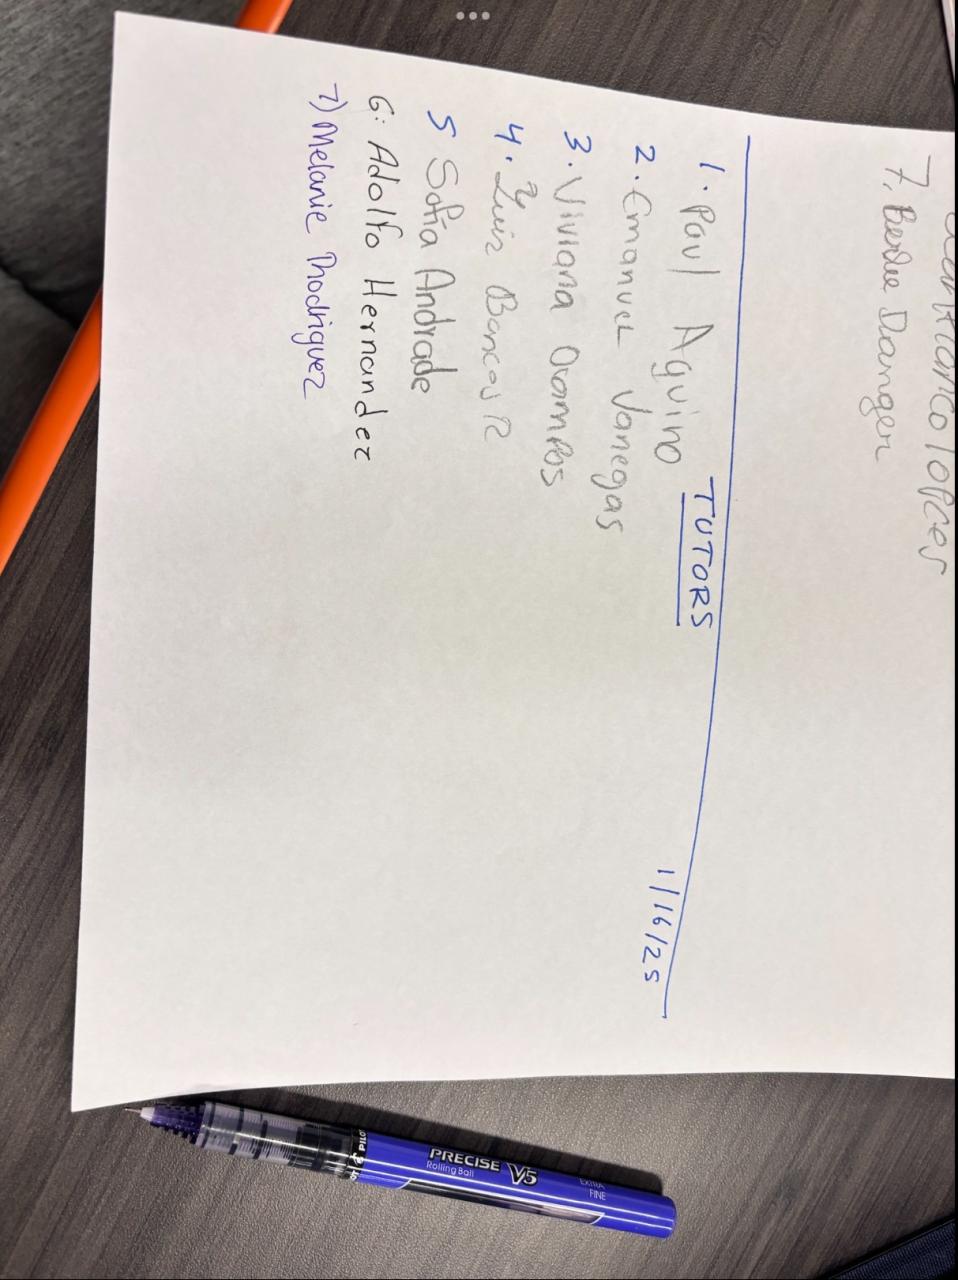 7. Danger
TUTORS
1/16/25
1. Paul Aquino
2. Emanuel Vanegas
3. Viviana Ocampos
4. Luiz Barcos R
5 Sofia Andrade
6: Adolfo Hernandez
7) Melanie Rhodriguez
PILOT
PRECISE V5
Rolling Ball
EXTRA
FINE